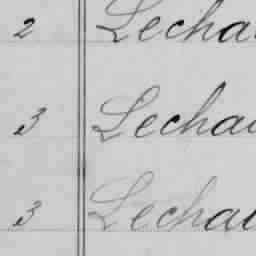 2 Lecha
3 Lechau
3 Lechau